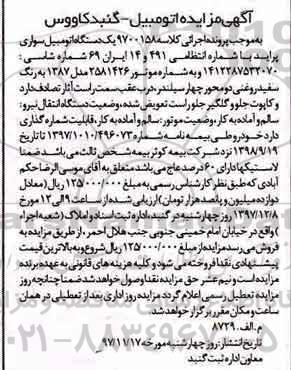 آگهی مزایده اتومبیل-گنبدکاووس
به موجب پرونده اجرائی کلاسه ۹۷۰۰۱۵۸ یک دستگاه اتومبیل سواری
پراید با شماره انتظامی ۴۹۱ و ۱۴ ایران ۶۹ شماره شاسی :
۱۴۱۲۲۸۷۵۳۲۰۷۰ و به شماره موتور ۲۵۸۱۴۲۶ مدل ۱۳۸۷ به رنگ
سفید روغنی دو محور چهار سیلندر، درب عقب سمت راست آثار تصادف دارد
و کاپوت جلو و گلگیر جلو راست تعویض شده، وضعیت دستگاه انتقال نیرو:
سالم و آماده به کار، وضعیت موتور: سالم و آماده به کار، قابلیت شماره گذاری
دارد خودرو طی بیمه نامه شماره ۱۳۹۷/۱۰۱۰/۴۹۶۰۷۳ تا تاریخ
۱۳۹۸/۹/۱۹ نزد شرکت بیمه کوثر بیمه شخص ثالث می باشد ضمنا
لاستیکها دارای ۶۰ درصد عاج می باشد متعلق به آقای موسی الرضا حکم
آبادی که طبق نظر کارشناس رسمی به مبلغ ۱۲۵/۰۰۰/۰۰۰ ریال (معادل
دوازده میلیون و پانصد هزار تومان) ارزیابی شده از ساعت ۹ الی ۱۲ مورخ
۱۳۹۷/۱۲/۸ روز چهارشنبه در گنبد، اداره ثبت اسناد و املاک (شعبه اجراء
) واقع در خیابان امام خمینی جنوبی جنب هلال احمر، از طریق مزایده به
فروش می رسد مزایده از مبلغ ۱۲۵/۰۰۰/۰۰۰ ریال شروع و به بالاترین قیمت
پیشنهادی نقدا فروخته می شود و کلیه هزینه های قانونی به عهده برنده
مزایده است و نیم عشر حق مزایده نقدا وصول خواهد شد ضمنا چنانچه روز
مزایده تعطیل رسمی اعلام گردد مزایده روز اداری بعد از تعطیلی در همان
ساعت و مکان مقرر برگزار خواهد شد
م . الف . ۸۷۲۹
تاریخ انتشار: روز چهارشنبه مورخه ۹۷/۱۱/۱۷
معاون اداره ثبت گنبد
۰۲۱-۸۸۳۴۹۶۷۰